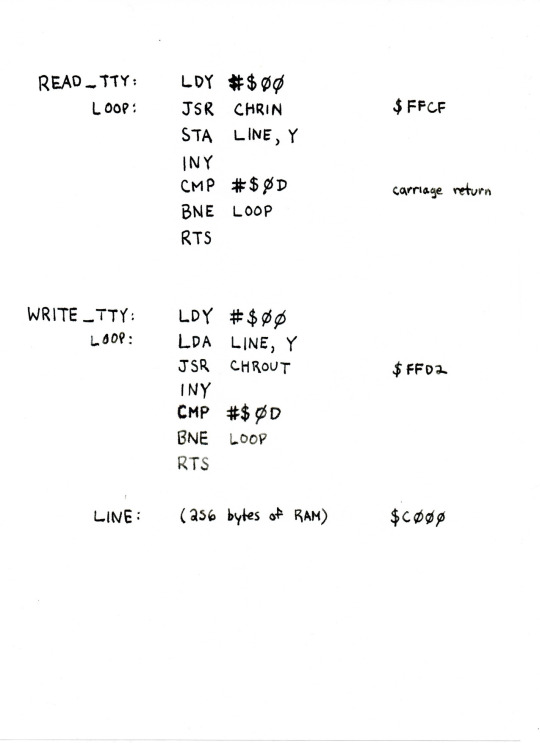 READ_TTY: LDY #$ØØ
LOOP: JSR CHRIN $FFCF
STA LINE, Y
INY
CMP #$ØD carriage return
BNE LOOP
RTS
WRITE_TTY: LDY #$ØØ
LOOP: LDA LINE, Y
JSR CHROUT $FFD2
INY
CMP #$ØD
BNE LOOP
RTS
LINE: (256 bytes of RAM) $CØØØ